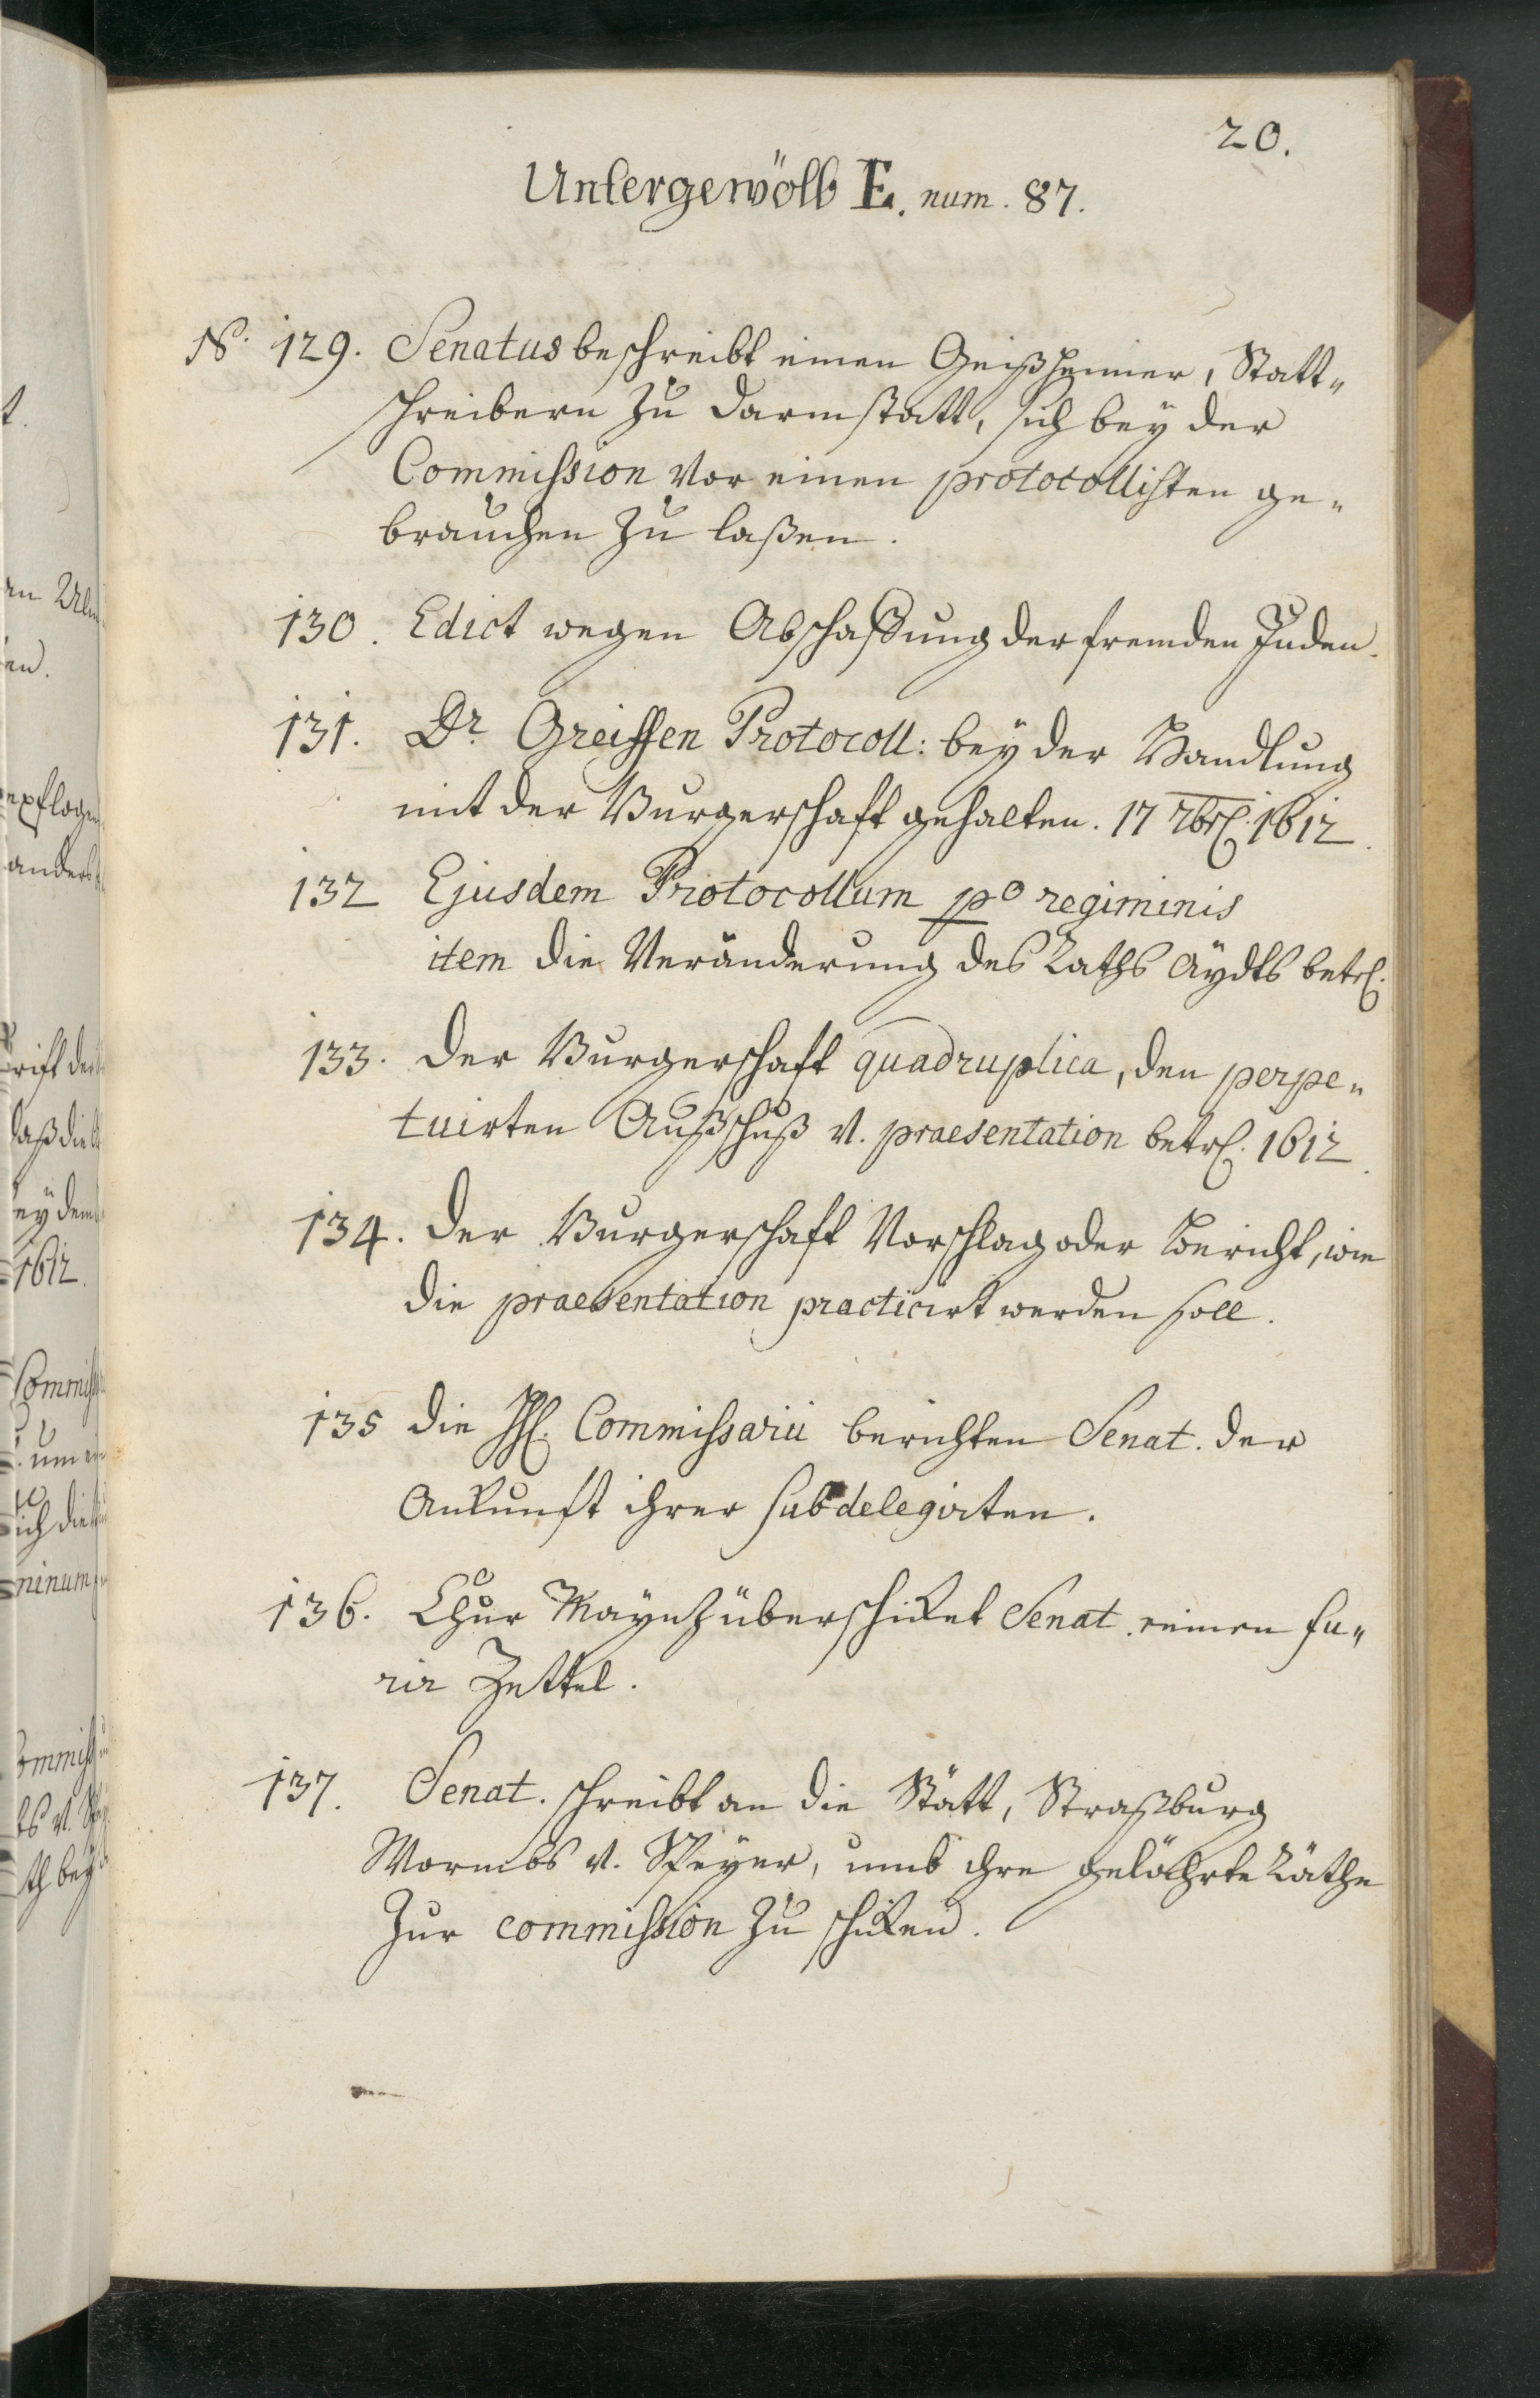 20.
Untergewölb E. num. 87.
N. 129. Senatus beschreibt einen Geißheimer, Statt-
schreibern zu Darmstatt, sich bey der
Commission vor einen protocollisten ge-
brauchen zu laßen.
130. Edict wegen Abschaffung der fremden Juden.
131. Dr. Greiffen Protocoll: bey der Handlung
mit der Burgerschaft gehalten. 17 7br. 1612.
132 Ejusdem Protocollum po regiminis
item die Veränderung des Raths Aydts betr.
133. Der Burgerschaft quadruplica, den perpe-
tuirten Außschuß v. praesentation betr. 1612.
134. Der Burgerschaft Vorschlag oder Bericht, wie
die praesentation practicirt werden soll.
135 die HH. Commissarii berichten Senat. der
Ankunft ihrer subdelegirten.
136. Chur Maynz überschicket Senat. einen fu-
rir Zettel.
137. Senat. schreibt an die Stätt, Straßburg
Wormbs v. Speyer, umb ihre gelährte Räthe
zur commission zu schicken.